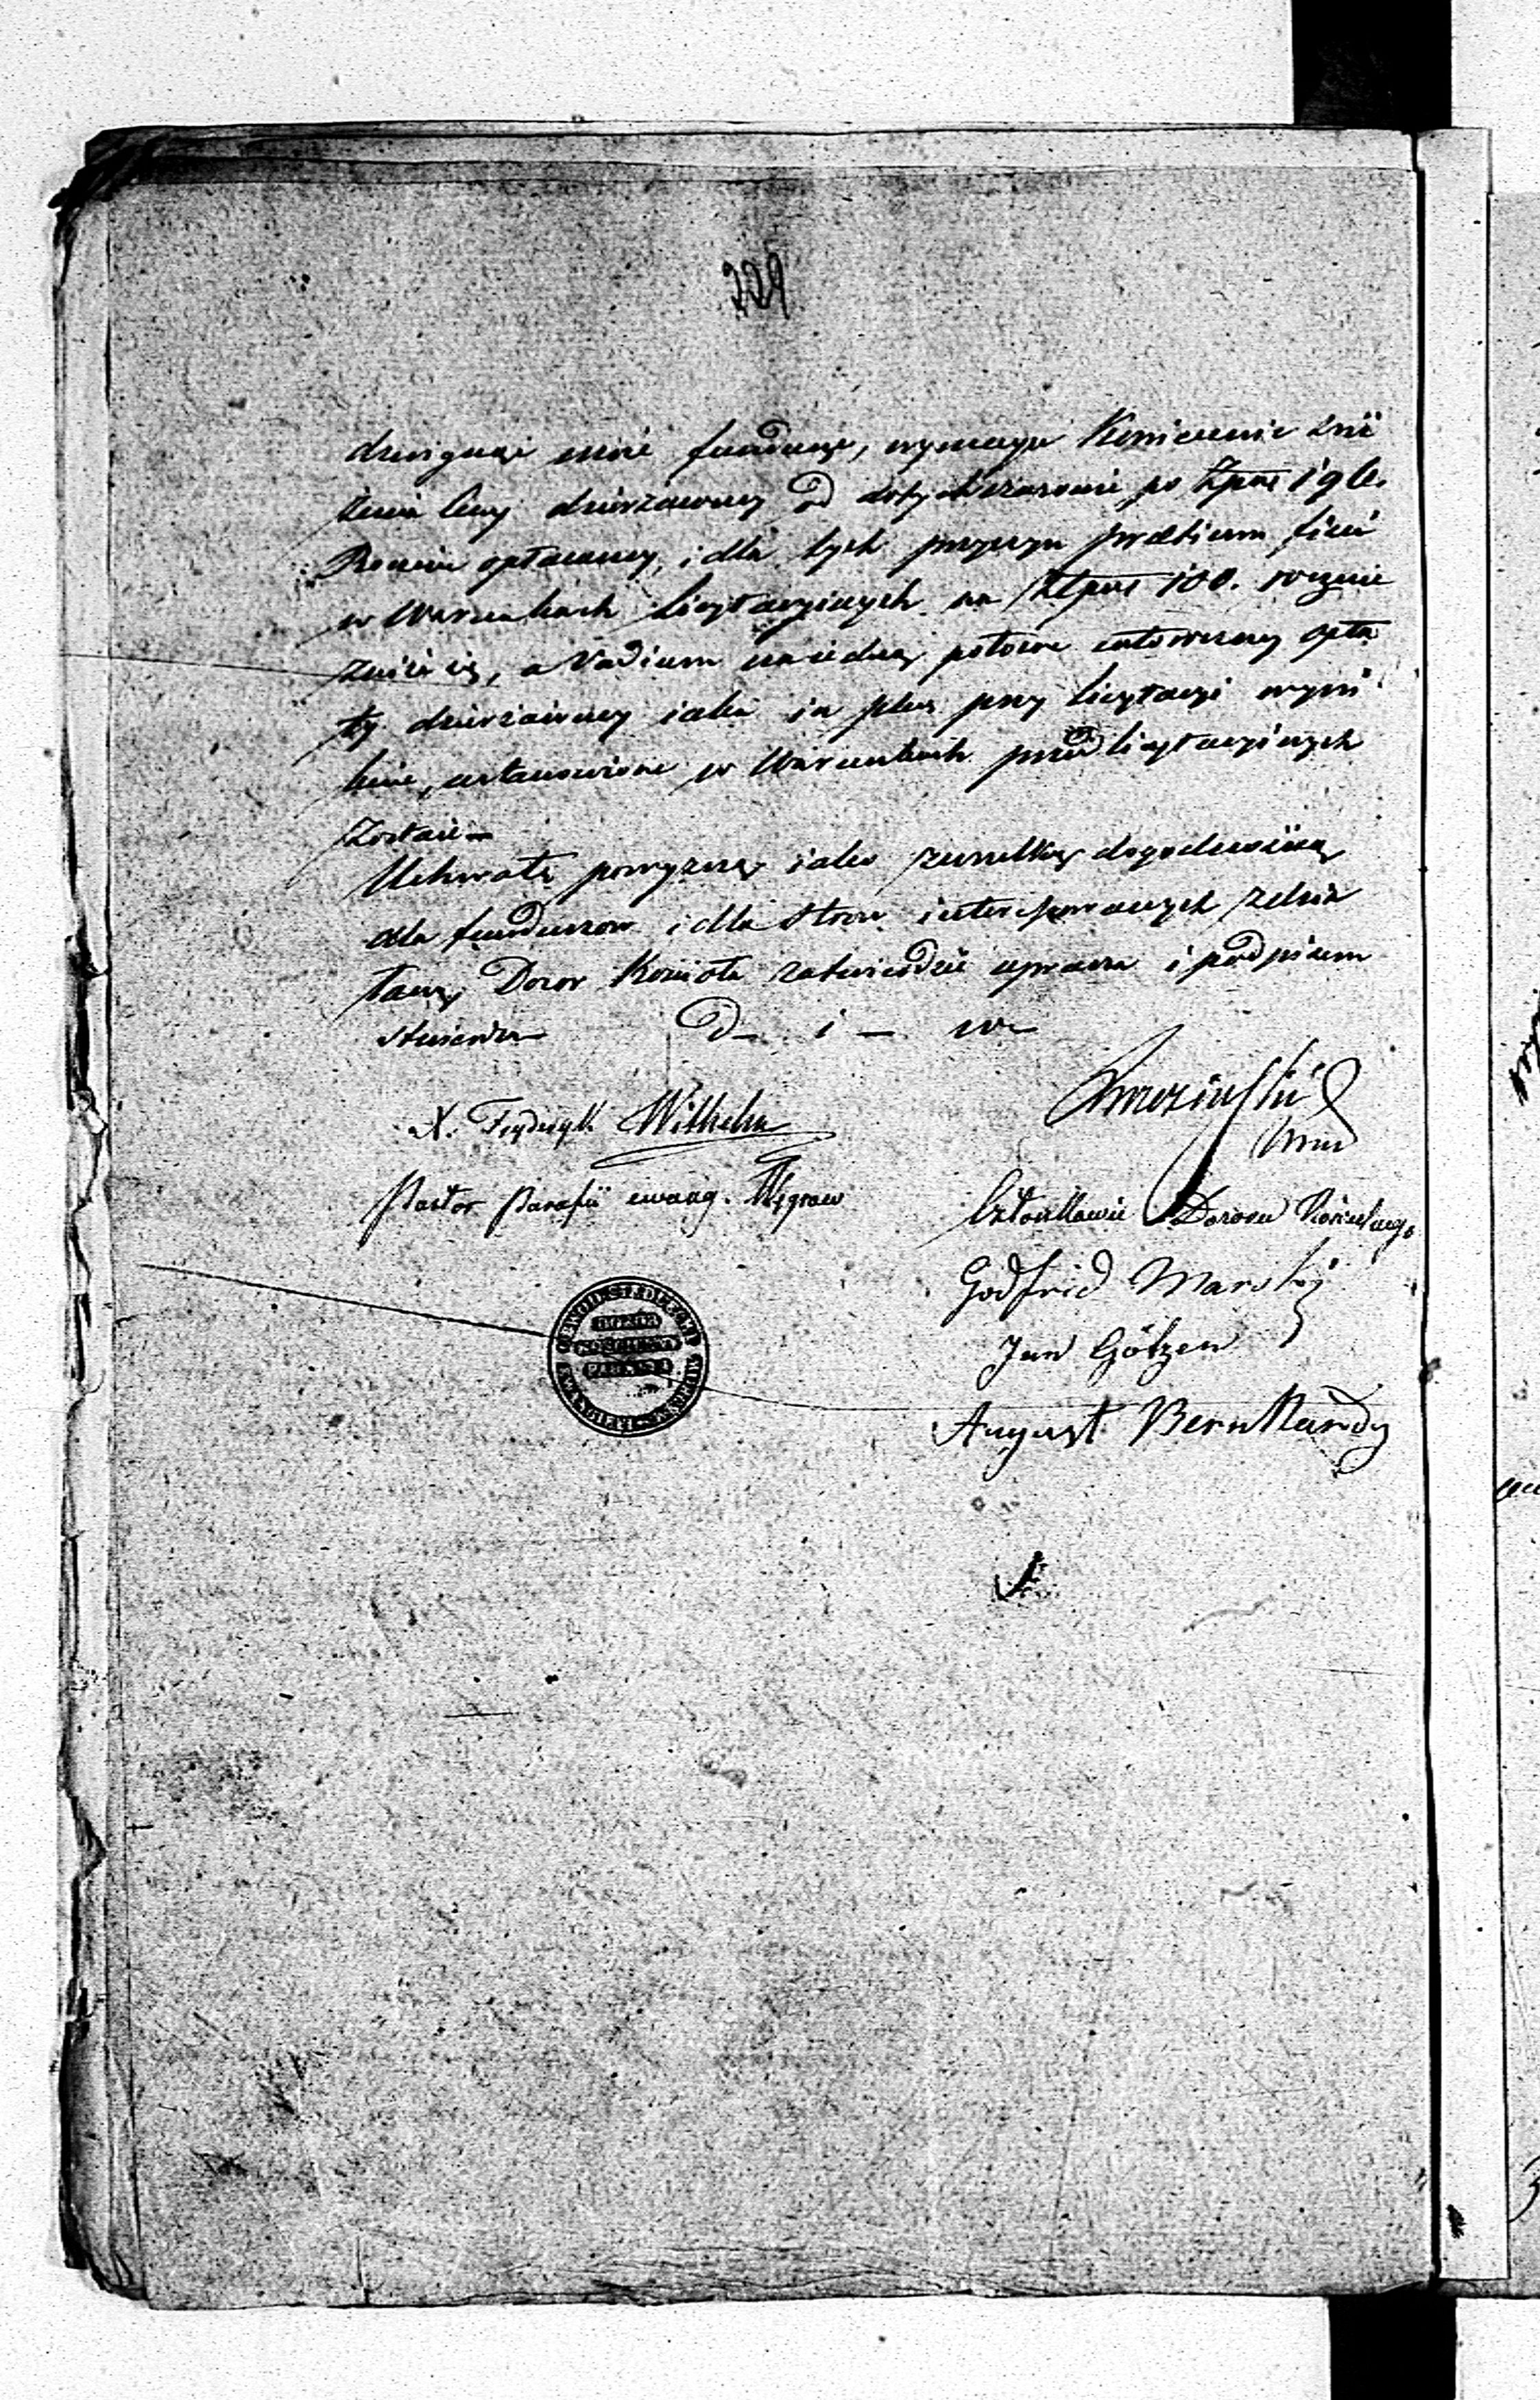 229
dzwignąć może fundusze, wymaga koniecznie zni
żenia Ceny dzierżawney od dotychczasowie po Złpol 196.
Rocznie opłacaney, i dla tych przyczyn praetium fisci
w Warunkach licytacyinych na Złpol 100. rocznie
zniża się, a Vadium na iedną połowę całoroczney opła
ty dzierżawney iaka in plus przy licytacyi wyni
knie, ustanowione w Warunkach przedlicytacyinych
zostaie—
Uchwałę powyższą iako wszelką dogodność
dla funduszow i dla Stron interessowanych
Dozor Kościoła zatwierdzić uprasza i podpisem
stwierdza D— i— w—
X. Fryderyk Wilhelm
Pastor Parafii ewang. Węgrow
Członkowie Dozoru Kościelnego
Godfrid Marski
Jan Götzen
August Bernhardy
DOZÓR
KOŚCIELNY